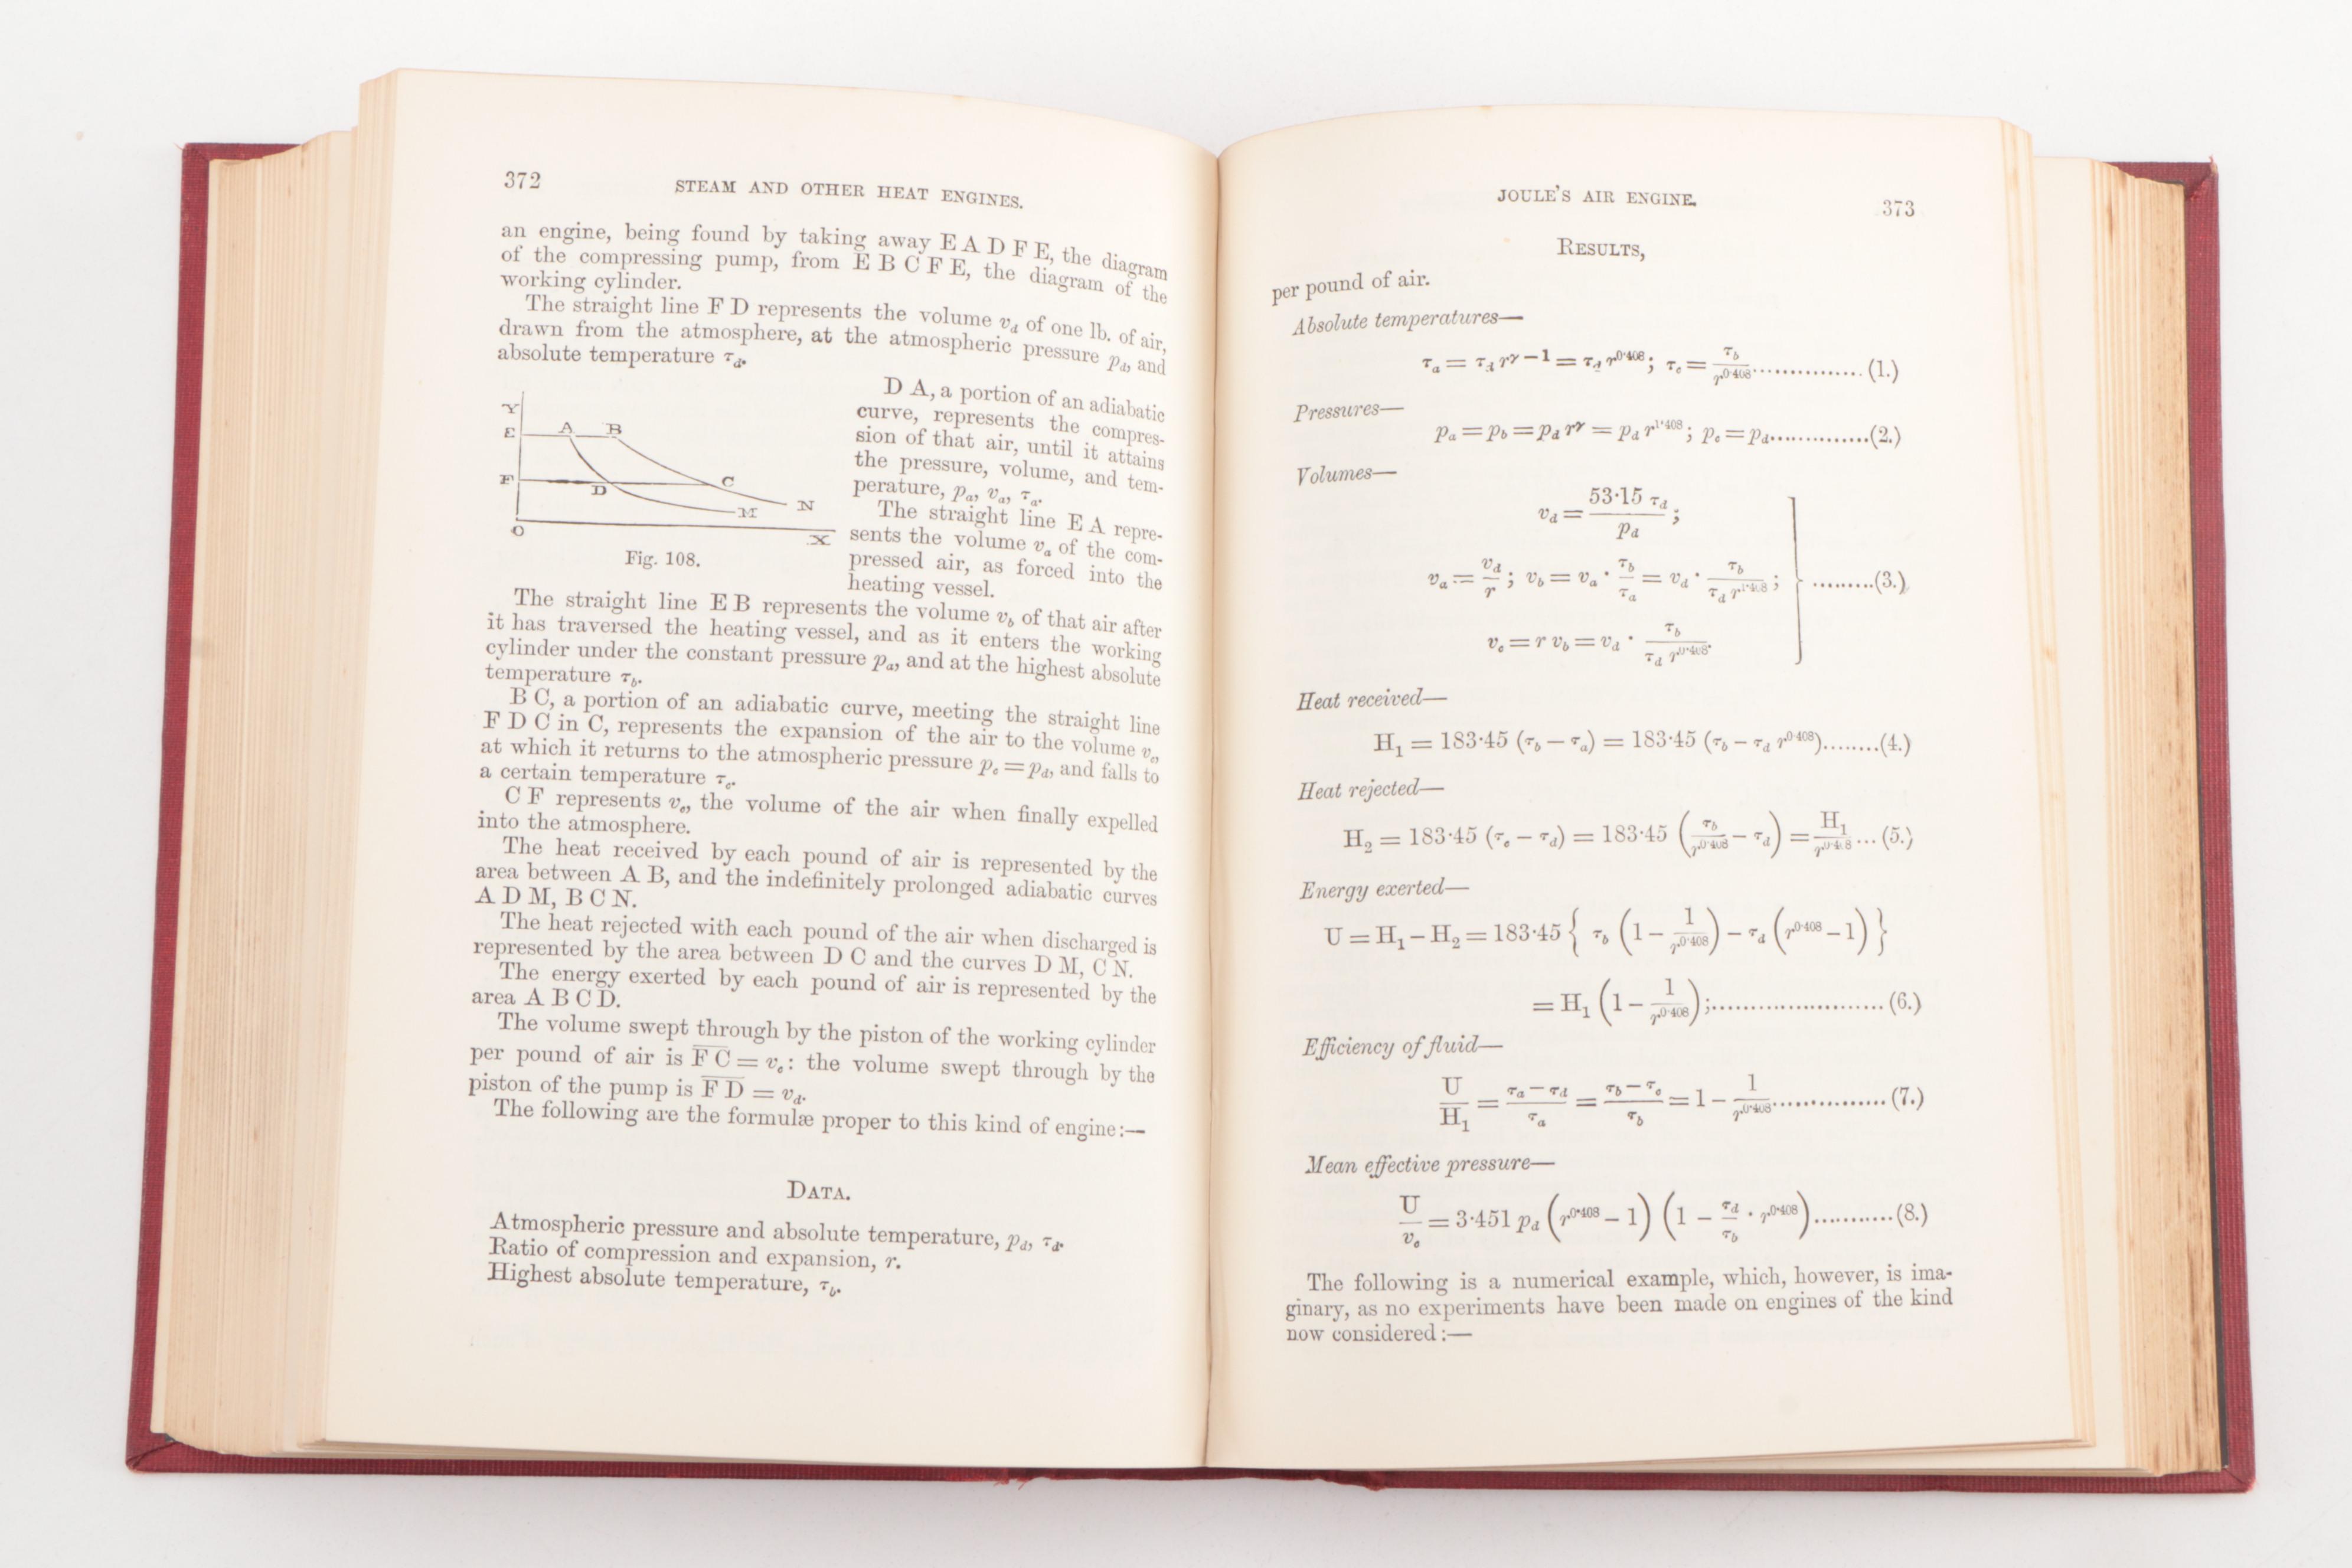 372
STEAM AND OTHER HEAT ENGINES.
an engine, being found by taking away E A D F E, the diagram
of the compressing pump, from E B C F E, the diagram of the
working cylinder.
The straight line F D represents the volume v_d of one lb. of air,
drawn from the atmosphere, at the atmospheric pressure p_d, and
absolute temperature τ_d.
D A, a portion of an adiabatic
curve, represents the compres-
sion of that air, until it attains
the pressure, volume, and tem-
perature, p_a, v_a, τ_a.
The straight line E A repre-
sents the volume v_a of the com-
pressed air, as forced into the
heating vessel.
Y
E A B
F D C
M N
O X
Fig. 108.
The straight line E B represents the volume v_b of that air after
it has traversed the heating vessel, and as it enters the working
cylinder under the constant pressure p_a, and at the highest absolute
temperature τ_b.
B C, a portion of an adiabatic curve, meeting the straight line
F D C in C, represents the expansion of the air to the volume v_c,
at which it returns to the atmospheric pressure p_c = p_d, and falls to
a certain temperature τ_c.
C F represents v_c, the volume of the air when finally expelled
into the atmosphere.
The heat received by each pound of air is represented by the
area between A B, and the indefinitely prolonged adiabatic curves
A D M, B C N.
The heat rejected with each pound of the air when discharged is
represented by the area between D C and the curves D M, C N.
The energy exerted by each pound of air is represented by the
area A B C D.
The volume swept through by the piston of the working cylinder
per pound of air is F C = v_c: the volume swept through by the
piston of the pump is F D = v_d.
The following are the formulæ proper to this kind of engine:—
DATA.
Atmospheric pressure and absolute temperature, p_d, τ_d.
Ratio of compression and expansion, r.
Highest absolute temperature, τ_b.
JOULE'S AIR ENGINE.
373
RESULTS,
per pound of air.
Absolute temperatures—
τ_a = τ_d r^(γ−1) = τ_d r^0·408; τ_c = τ_b / r^0·408 ............... (1.)
Pressures—
p_a = p_b = p_d r^γ = p_d r^1·408; p_c = p_d..............(2.)
Volumes—
v_d = 53·15 τ_d / p_d;
v_a = v_d / r; v_b = v_a · τ_b / τ_a = v_d · τ_b / τ_d r^1·408; .........(3.)
v_c = r v_b = v_d · τ_b / τ_d r^0·408.
Heat received—
H_1 = 183·45 (τ_b − τ_a) = 183·45 (τ_b − τ_d r^0·408)........(4.)
Heat rejected—
H_2 = 183·45 (τ_c − τ_d) = 183·45 (τ_b / r^0·408 − τ_d) = H_1 / r^0·408 ... (5.)
Energy exerted—
U = H_1 − H_2 = 183·45 { τ_b (1 − 1 / r^0·408) − τ_d (r^0·408 − 1) }
= H_1 (1 − 1 / r^0·408);........................ (6.)
Efficiency of fluid—
U / H_1 = τ_a − τ_d / τ_a = τ_b − τ_c / τ_b = 1 − 1 / r^0·408 ............... (7.)
Mean effective pressure—
U / v_c = 3·451 p_d (r^0·408 − 1) (1 − τ_d / τ_b · r^0·408)...........(8.)
The following is a numerical example, which, however, is ima-
ginary, as no experiments have been made on engines of the kind
now considered:—